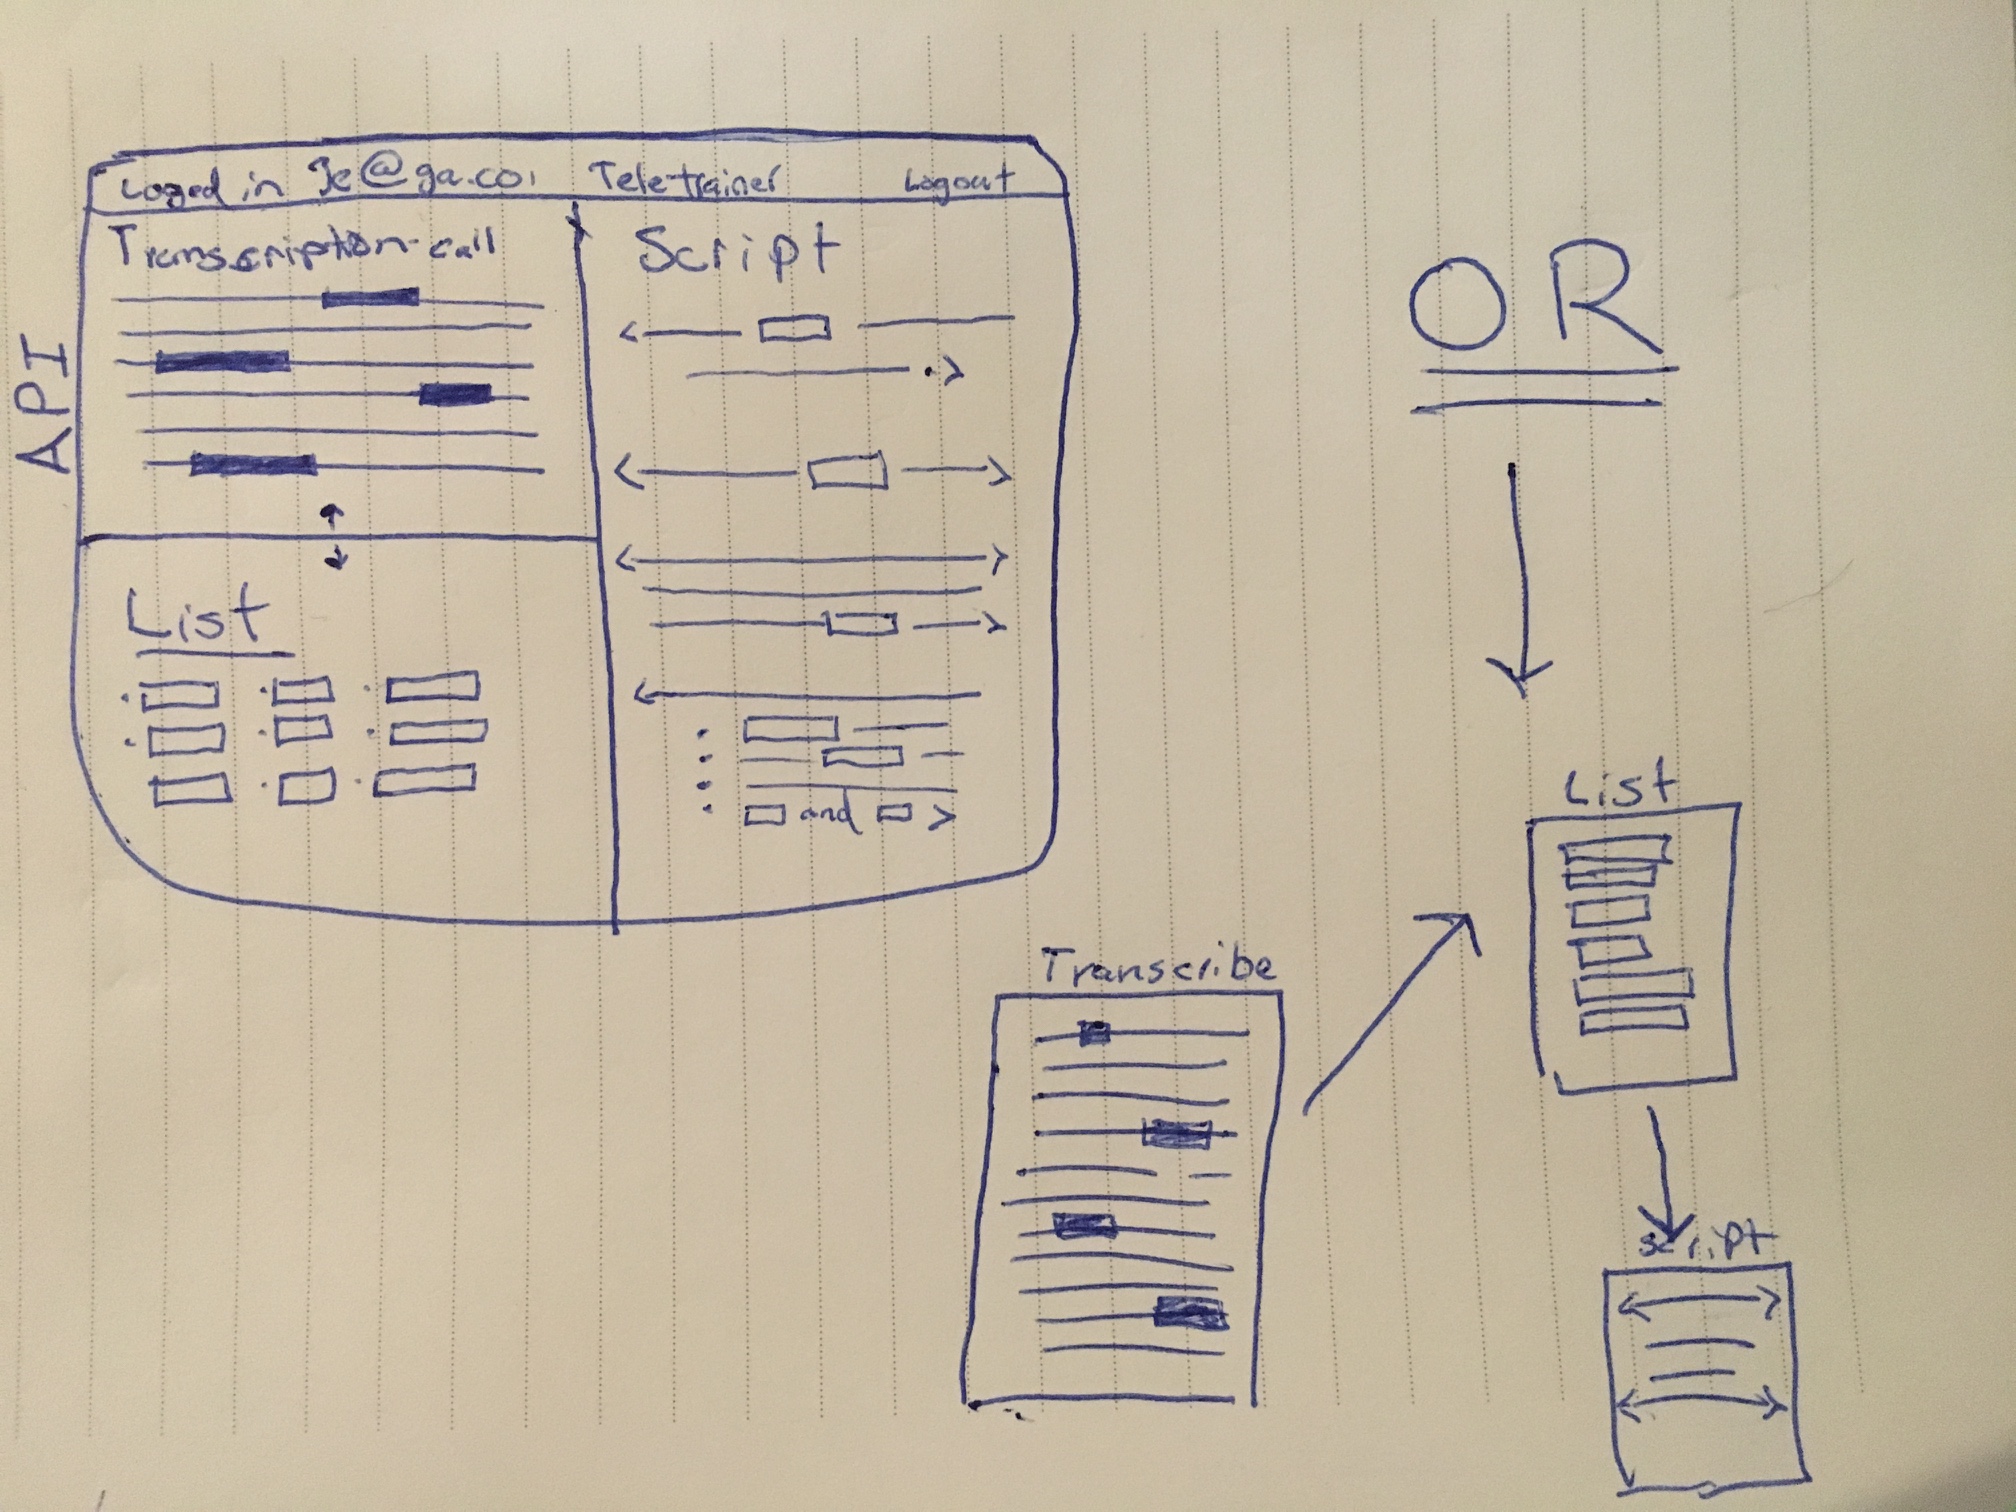 Loged in Je@ga.co Teletrainer Logout
Transcription-call
Script
API
List
and
OR
List
Transcribe
script